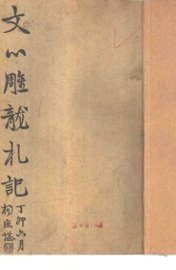 文心雕龍札記
丁卯六月